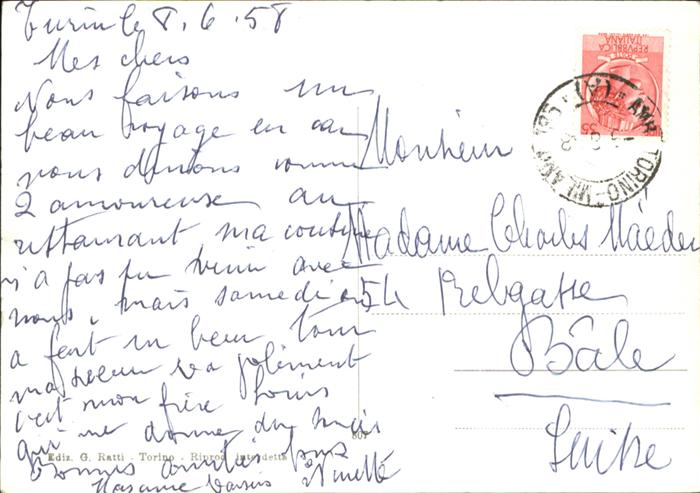 Turin le 8.6.58
Mes chers
Nous faisons un
beau voyage en car
nous dinons comme
2 amoureuse au
restaurant ma cousine
n'a pas pu venir avec
nous, mais samedi on
a fait un beau tour
ma soeur va joliment
c'est mon frère Louis
qui me donne du
Bonnes amitiés
Ninette
Monsieur
Madame Charles Mäeder
54 Rebgasse
Bâle
Suisse
REPVBBLICA
ITALIANA
TORINO - MILANO
Ediz. G. Ratti - Torino - Riprod. interdetta
807